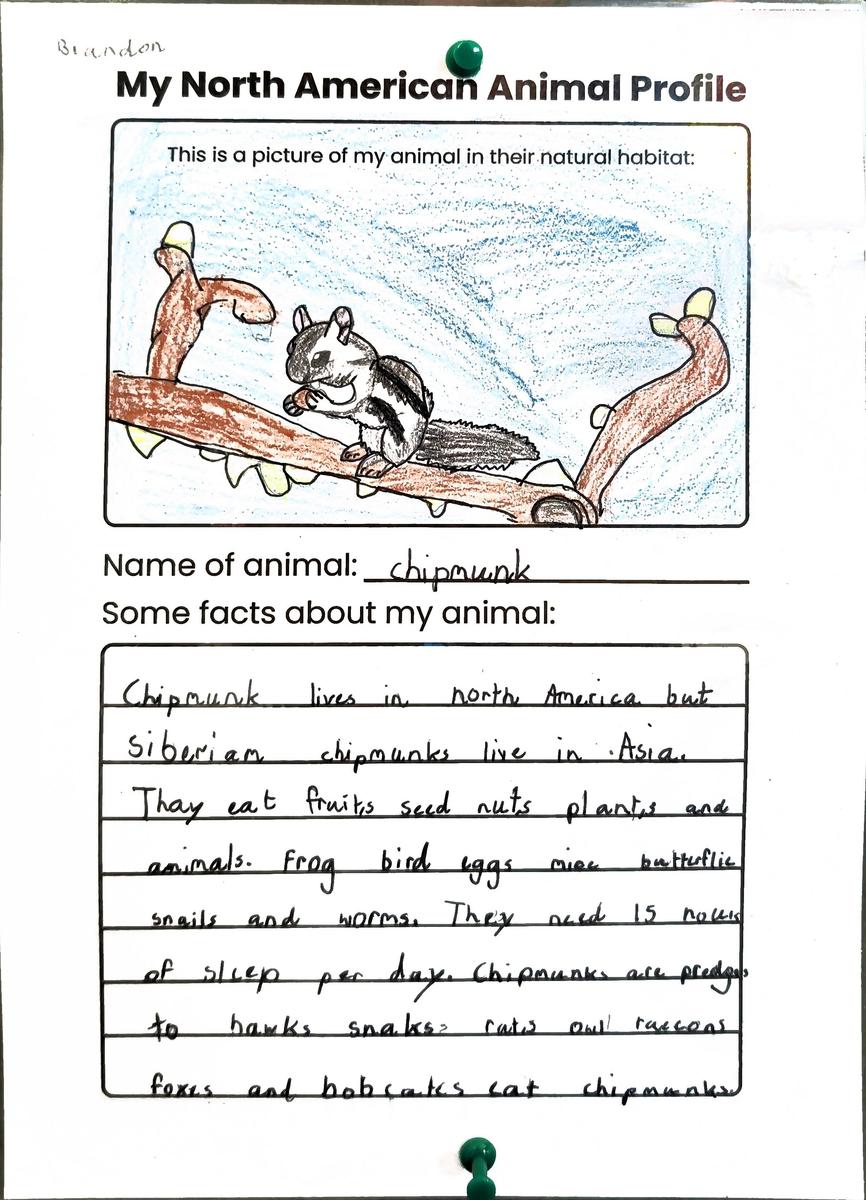 Brandon
My North American Animal Profile
This is a picture of my animal in their natural habitat:
Name of animal: chipmunk
Some facts about my animal:
Chipmunk lives in north America but
Siberian chipmunks live in Asia.
Thay eat fruits seed nuts plants and
animals. Frog bird eggs mice butterflie
snails and worms. They need 15 hours
of sleep per day. Chipmunks are
to hawks snakes rats owl raccons
foxes and bobcats eat chipmunks.